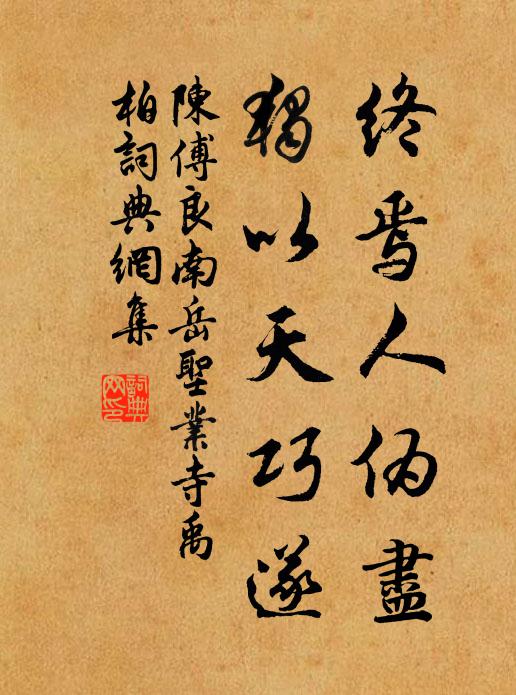 終焉人偽盡
獨以天巧遂
陳傅良南岳聖業寺禹
柏詞典網集
詞典
网印